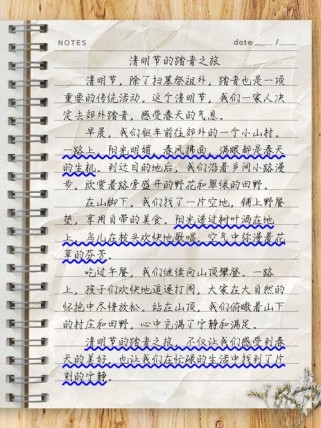 NOTES date ___/___
清明节的踏青之旅
清明节，除了扫墓祭祖外，踏青也是一项
重要的传统活动。这个清明节，我们一家人决
定去郊外踏青，感受春天的气息。
早晨，我们驱车前往郊外的一个小山村。
一路上，阳光明媚，春风拂面，满眼都是春天
的生机。到达目的地后，我们沿着乡间小路漫
步，欣赏着路旁盛开的野花和翠绿的田野。
在山脚下，我们找了一片空地，铺上野餐
垫，享用自带的美食。阳光透过树叶洒在地
上，鸟儿在枝头欢快地歌唱，空气中弥漫着花
草的芬芳。
吃过午餐，我们继续向山顶攀登。一路
上，孩子们欢快地追逐打闹，大家在大自然的
怀抱中尽情放松。站在山顶，我们俯瞰着山下
的村庄和田野，心中充满了宁静和满足。
清明节的踏青之旅，不仅让我们感受到春
天的美好，也让我们在忙碌的生活中找到了片
刻的宁静。